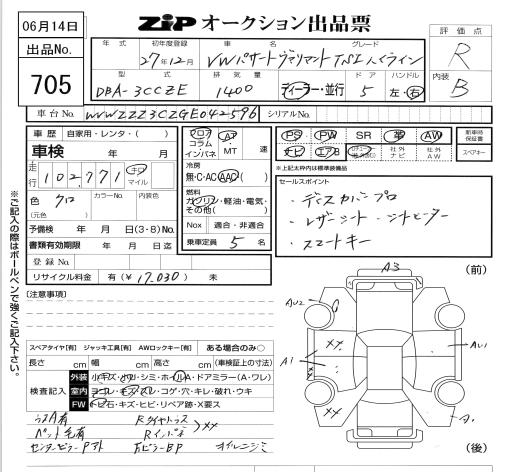 06月14日
ZiP オークション出品票
評価点
R
内装
B
出品No.
705
年式 初年度登録 車名 グレード
27年12月 VWパサートヴァリアント TSIハイライン
型式 排気量 ドア ハンドル
DBA-3CCZE 1400 ディーラー・並行 5 左・右
車台No. WVWZZZ3CZGE042596 シリアルNo.
車歴 自家用・レンタ・( )
車検 年 月
走行 102,771 キロ マイル
色 クロ (元色) カラーNo. 内装色
予備検 年 月 日(3・8)No.
書類有効期限 年 月 日迄
登録No.
リサイクル料金 有(¥17,030) 未
フロア コラム インパネ AT MT 速
冷房
無・C・AC・AAC( )
燃料
ガソリン・軽油・電気・その他( )
Nox 適合・非適合
乗車定員 5 名
PS PW SR 革 AW
ナビ エアB 社外ナビ 社外AW
新車時保証書
スペアキー
※上記太枠内は標準装備品
セールスポイント
・ディスカバープロ
・レザーシート・シートヒーター
・スマートキー
※ご記入の際はボールペンで強くご記入下さい。
[注意事項]
スペアタイヤ[有] ジャッキ工具[有] AWロックキー[有] ある場合のみ○
長さ cm 幅 cm 高さ cm (車検証上の寸法)
検査記入
外装 小キズ・ヘコ・シミ・ホイルA・ドアミラー(A・ワレ)
室内 ヨゴレ・キズ・スレ・コゲ・穴・キレ・破れ・ウキ
FW トビ石・キズ・ヒビ・リペア跡・X要ス
ペット毛有 Rインパネ
センターピラー
オイルニジミ
(前)
A3
AU2
A1
AU1
××
××
A1
(後)